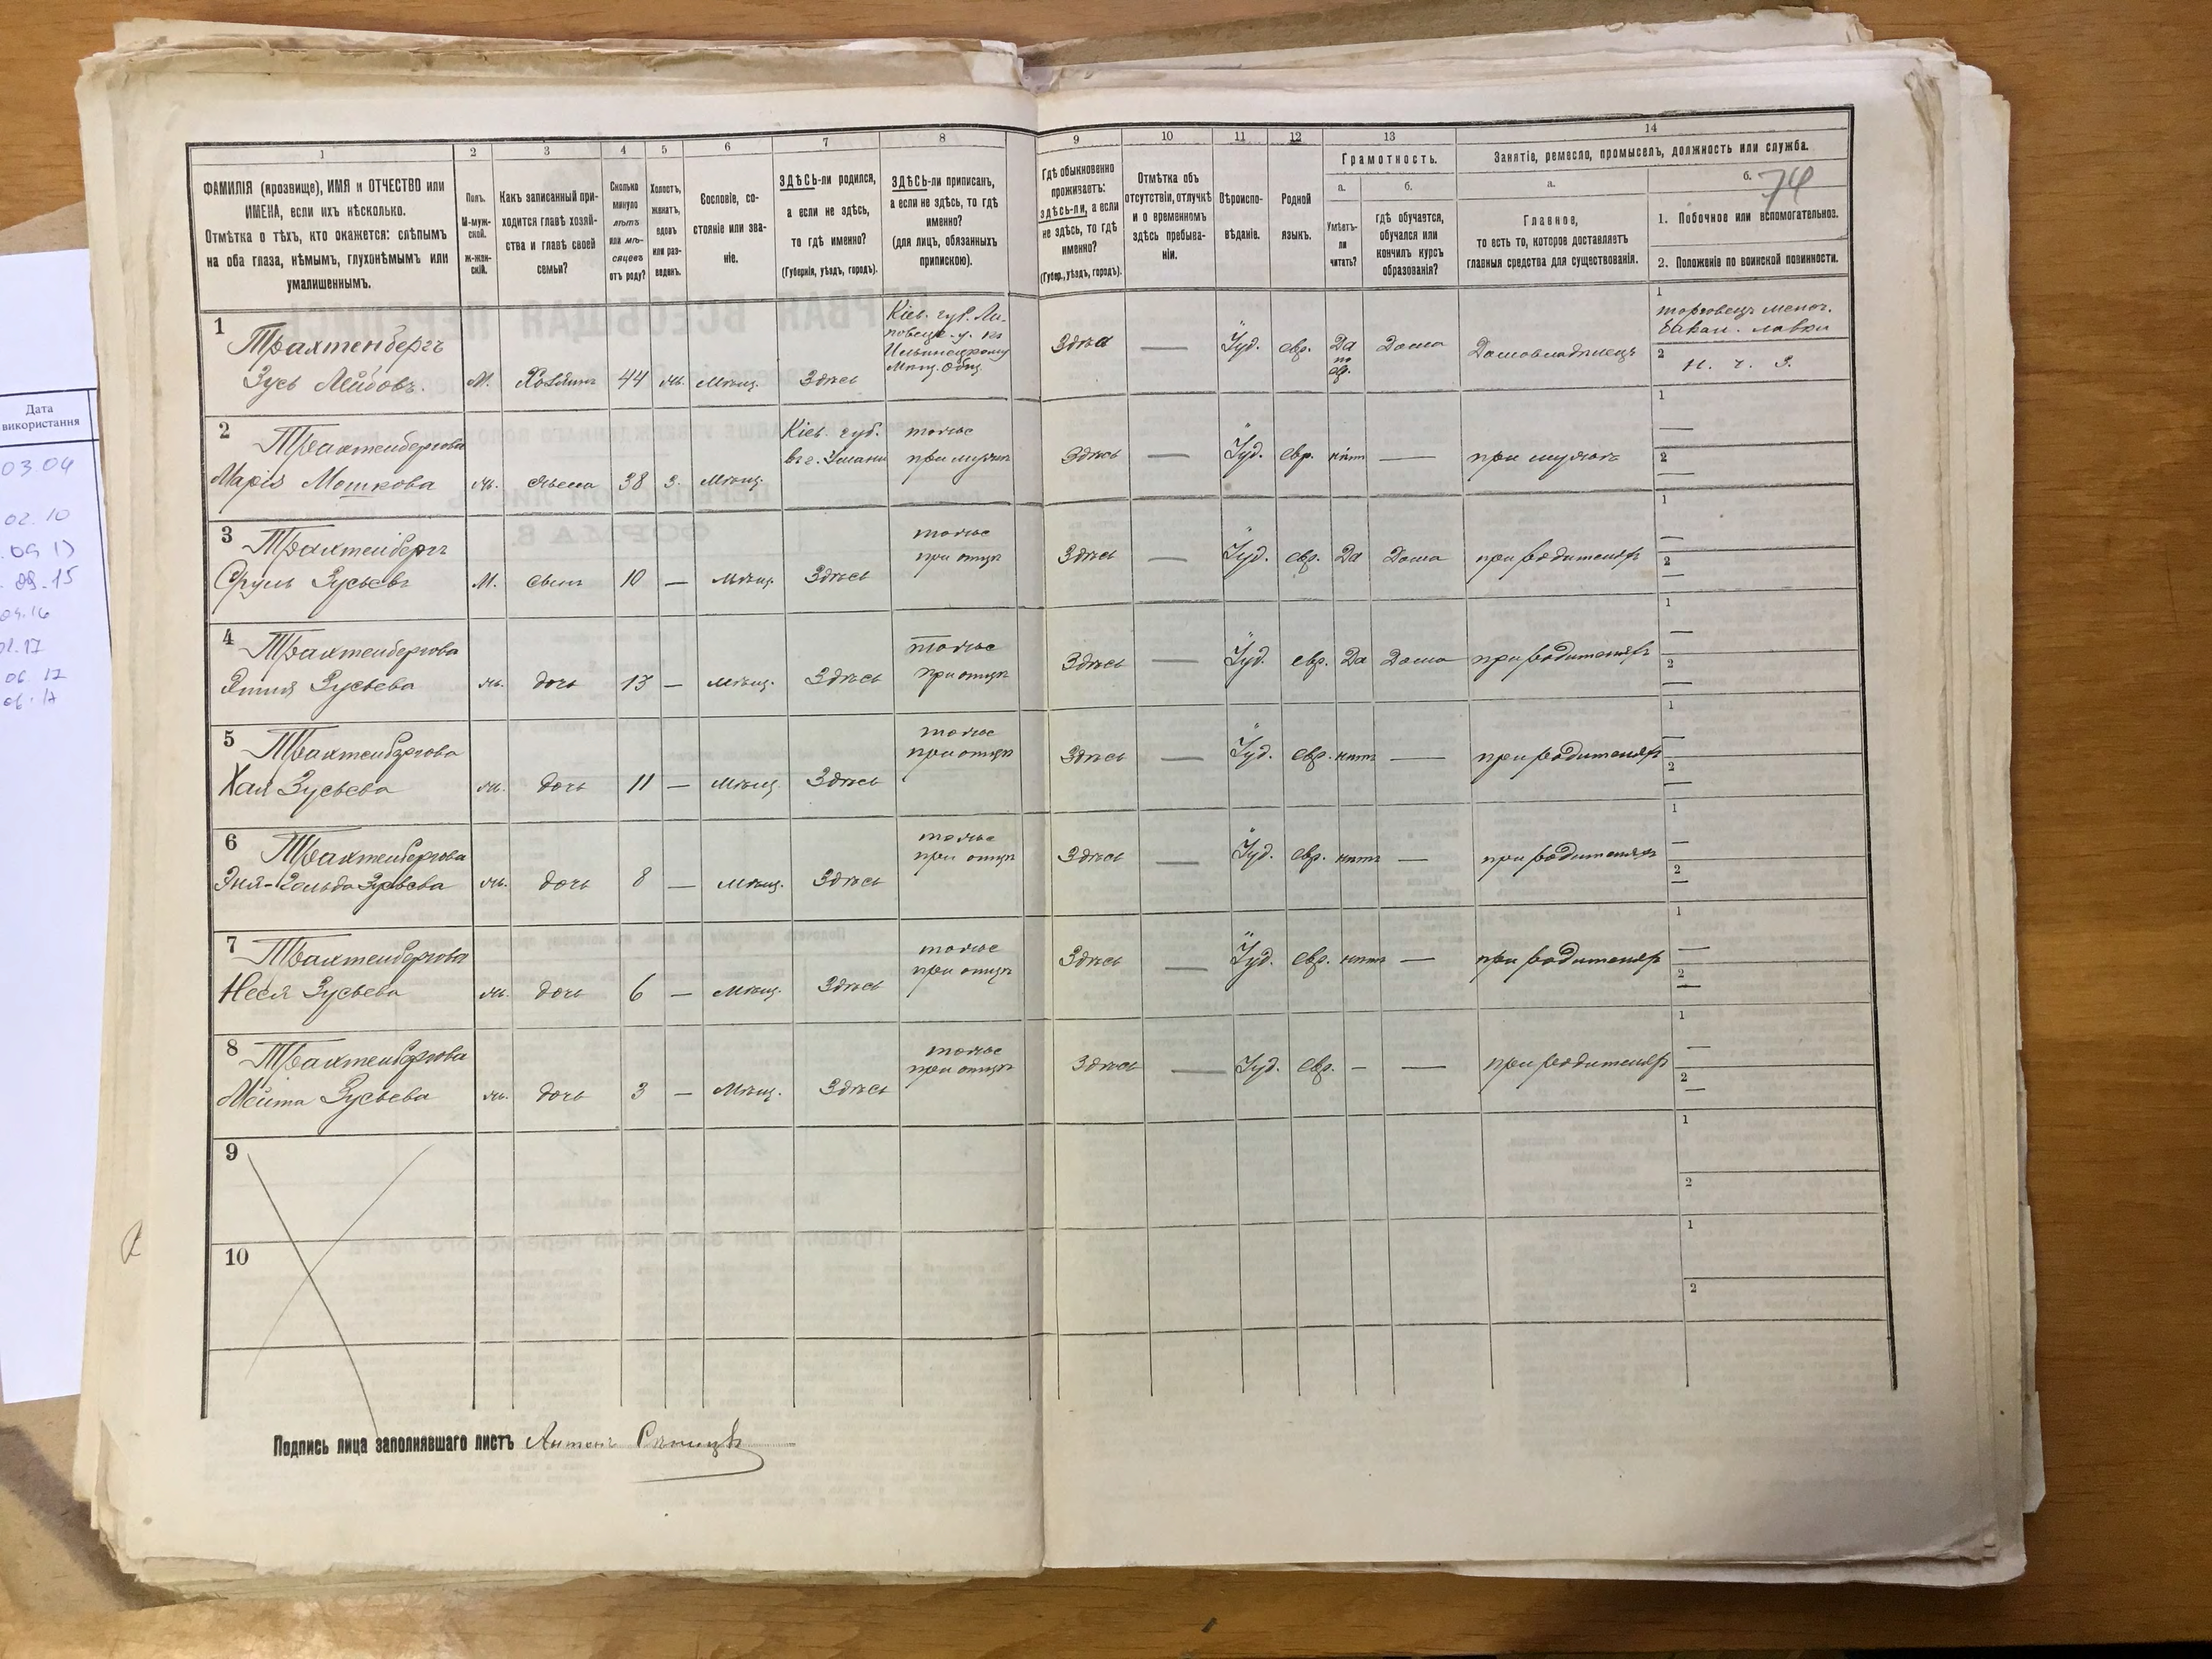 Дата
використання
03.04
02.10
09.15
04.16
01.17
06.17
06.17
74
1
2
3
4
5
6
7
8
9
10
11
12
13
14
ФАМИЛІЯ (прозвище), ИМЯ и ОТЧЕСТВО или
ИМЕНА, если ихъ нѣсколько.
Отмѣтка о тѣхъ, кто окажется: слѣпымъ
на оба глаза, нѣмымъ, глухонѣмымъ или
умалишеннымъ.
Полъ.
М-муж-
ской.
Ж-жен-
скій.
Какъ записанный при-
ходится главѣ хозяй-
ства и главѣ своей
семьи?
Сколько
минуло
лѣтъ
или мѣ-
сяцевъ
отъ роду?
Холостъ,
женатъ,
вдовъ
или раз-
веденъ.
Сословіе, со-
стояніе или зва-
ніе.
ЗДѢСЬ-ли родился,
а если не здѣсь,
то гдѣ именно?
(Губернія, уѣздъ, городъ).
ЗДѢСЬ-ли приписанъ,
а если не здѣсь, то гдѣ
именно?
(для лицъ, обязанныхъ
припиской).
Гдѣ обыкновенно
проживаетъ:
здѣсь-ли, а если
не здѣсь, то гдѣ
именно?
(Губер., уѣздъ, городъ).
Отмѣтка объ
отсутствіи, отлучкѣ
и о временномъ
здѣсь пребыва-
ніи.
Вѣроиспо-
вѣданіе.
Родной
языкъ.
Грамотность.
а.
Умѣетъ-
ли
читать?
б.
гдѣ обучается,
обучался или
кончилъ курсъ
образованія?
Занятіе, ремесло, промыселъ, должность или служба.
а.
Главное,
то есть то, которое доставляетъ
главныя средства для существованія.
б.
1. Побочное или вспомогательное.
2. Положеніе по воинской повинности.
1 Трахтенбергъ
Зусь Лейбовъ. М. Хозяинъ 44 ж. Мѣщ. Здѣсь
Кіев. губ. Ли-
повецк. у. къ
Ильинецкому
Мѣщ. Общ.
Здѣсь — Іуд. евр. Да
по
евр.
Дома Домовладѣлецъ
1 торговецъ мелоч.
бакал. лавки
2
2 Трахтенбергова
Марія Мошкова ж. жена 38 з. Мѣщ.
Кіев. губ.
въ г. Умани
тоже
при мужѣ
Здѣсь — Іуд. евр. нѣтъ — при мужѣ
1 —
2 —
3 Трахтенбергъ
Сруль Зусьевъ М. сынъ 10 — Мѣщ. Здѣсь
тоже
при отцѣ
Здѣсь — Іуд. евр. Да Дома при родителяхъ
1 —
2 —
4 Трахтенбергова
Зусьева ж. дочь 13 — Мѣщ. Здѣсь
тоже
при отцѣ
Здѣсь — Іуд. евр. Да Дома при родителяхъ
1 —
2 —
5 Трахтенбергова
Хая Зусьева ж. дочь 11 — Мѣщ. Здѣсь
тоже
при отцѣ
Здѣсь — Іуд. евр. нѣтъ — при родителяхъ
1 —
2 —
6 Трахтенбергова
Зусьева ж. дочь 8 — Мѣщ. Здѣсь
тоже
при отцѣ
Здѣсь — Іуд. евр. нѣтъ — при родителяхъ
1 —
2 —
7 Трахтенбергова
Неся Зусьева ж. дочь 6 — Мѣщ. Здѣсь
тоже
при отцѣ
Здѣсь — Іуд. евр. нѣтъ — при родителяхъ
1 —
2 —
8 Трахтенбергова
Мейта Зусьева ж. дочь 3 — Мѣщ. Здѣсь
тоже
при отцѣ
Здѣсь — Іуд. евр. — — при родителяхъ
1 —
2 —
9
1
2
10
1
2
Подпись лица заполнявшаго листъ Антонъ